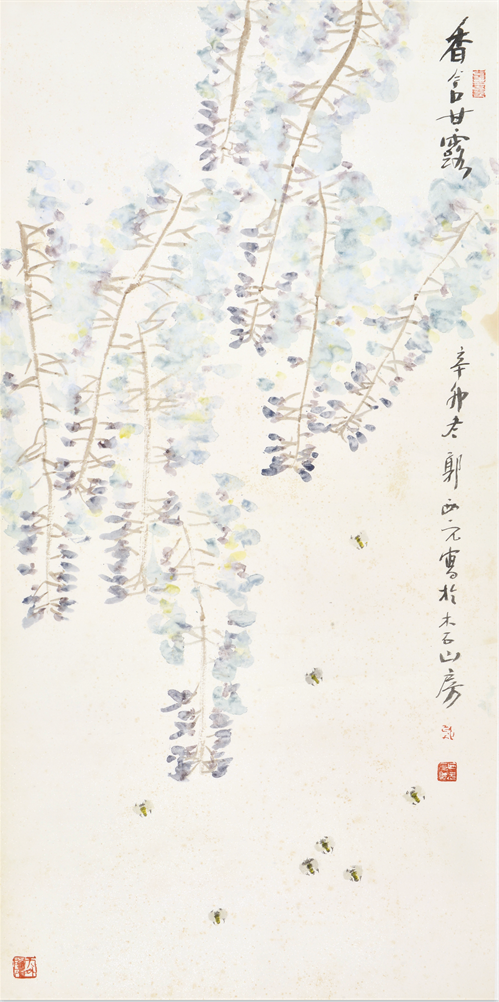 香含甘露
辛卯冬郭西元写於木石山房